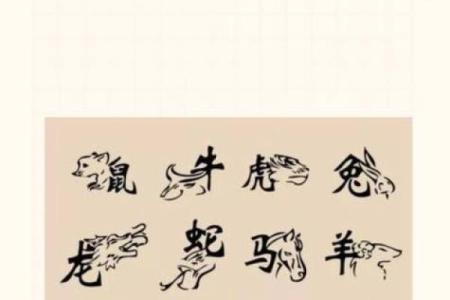 鼠牛虎兔
龙蛇马羊